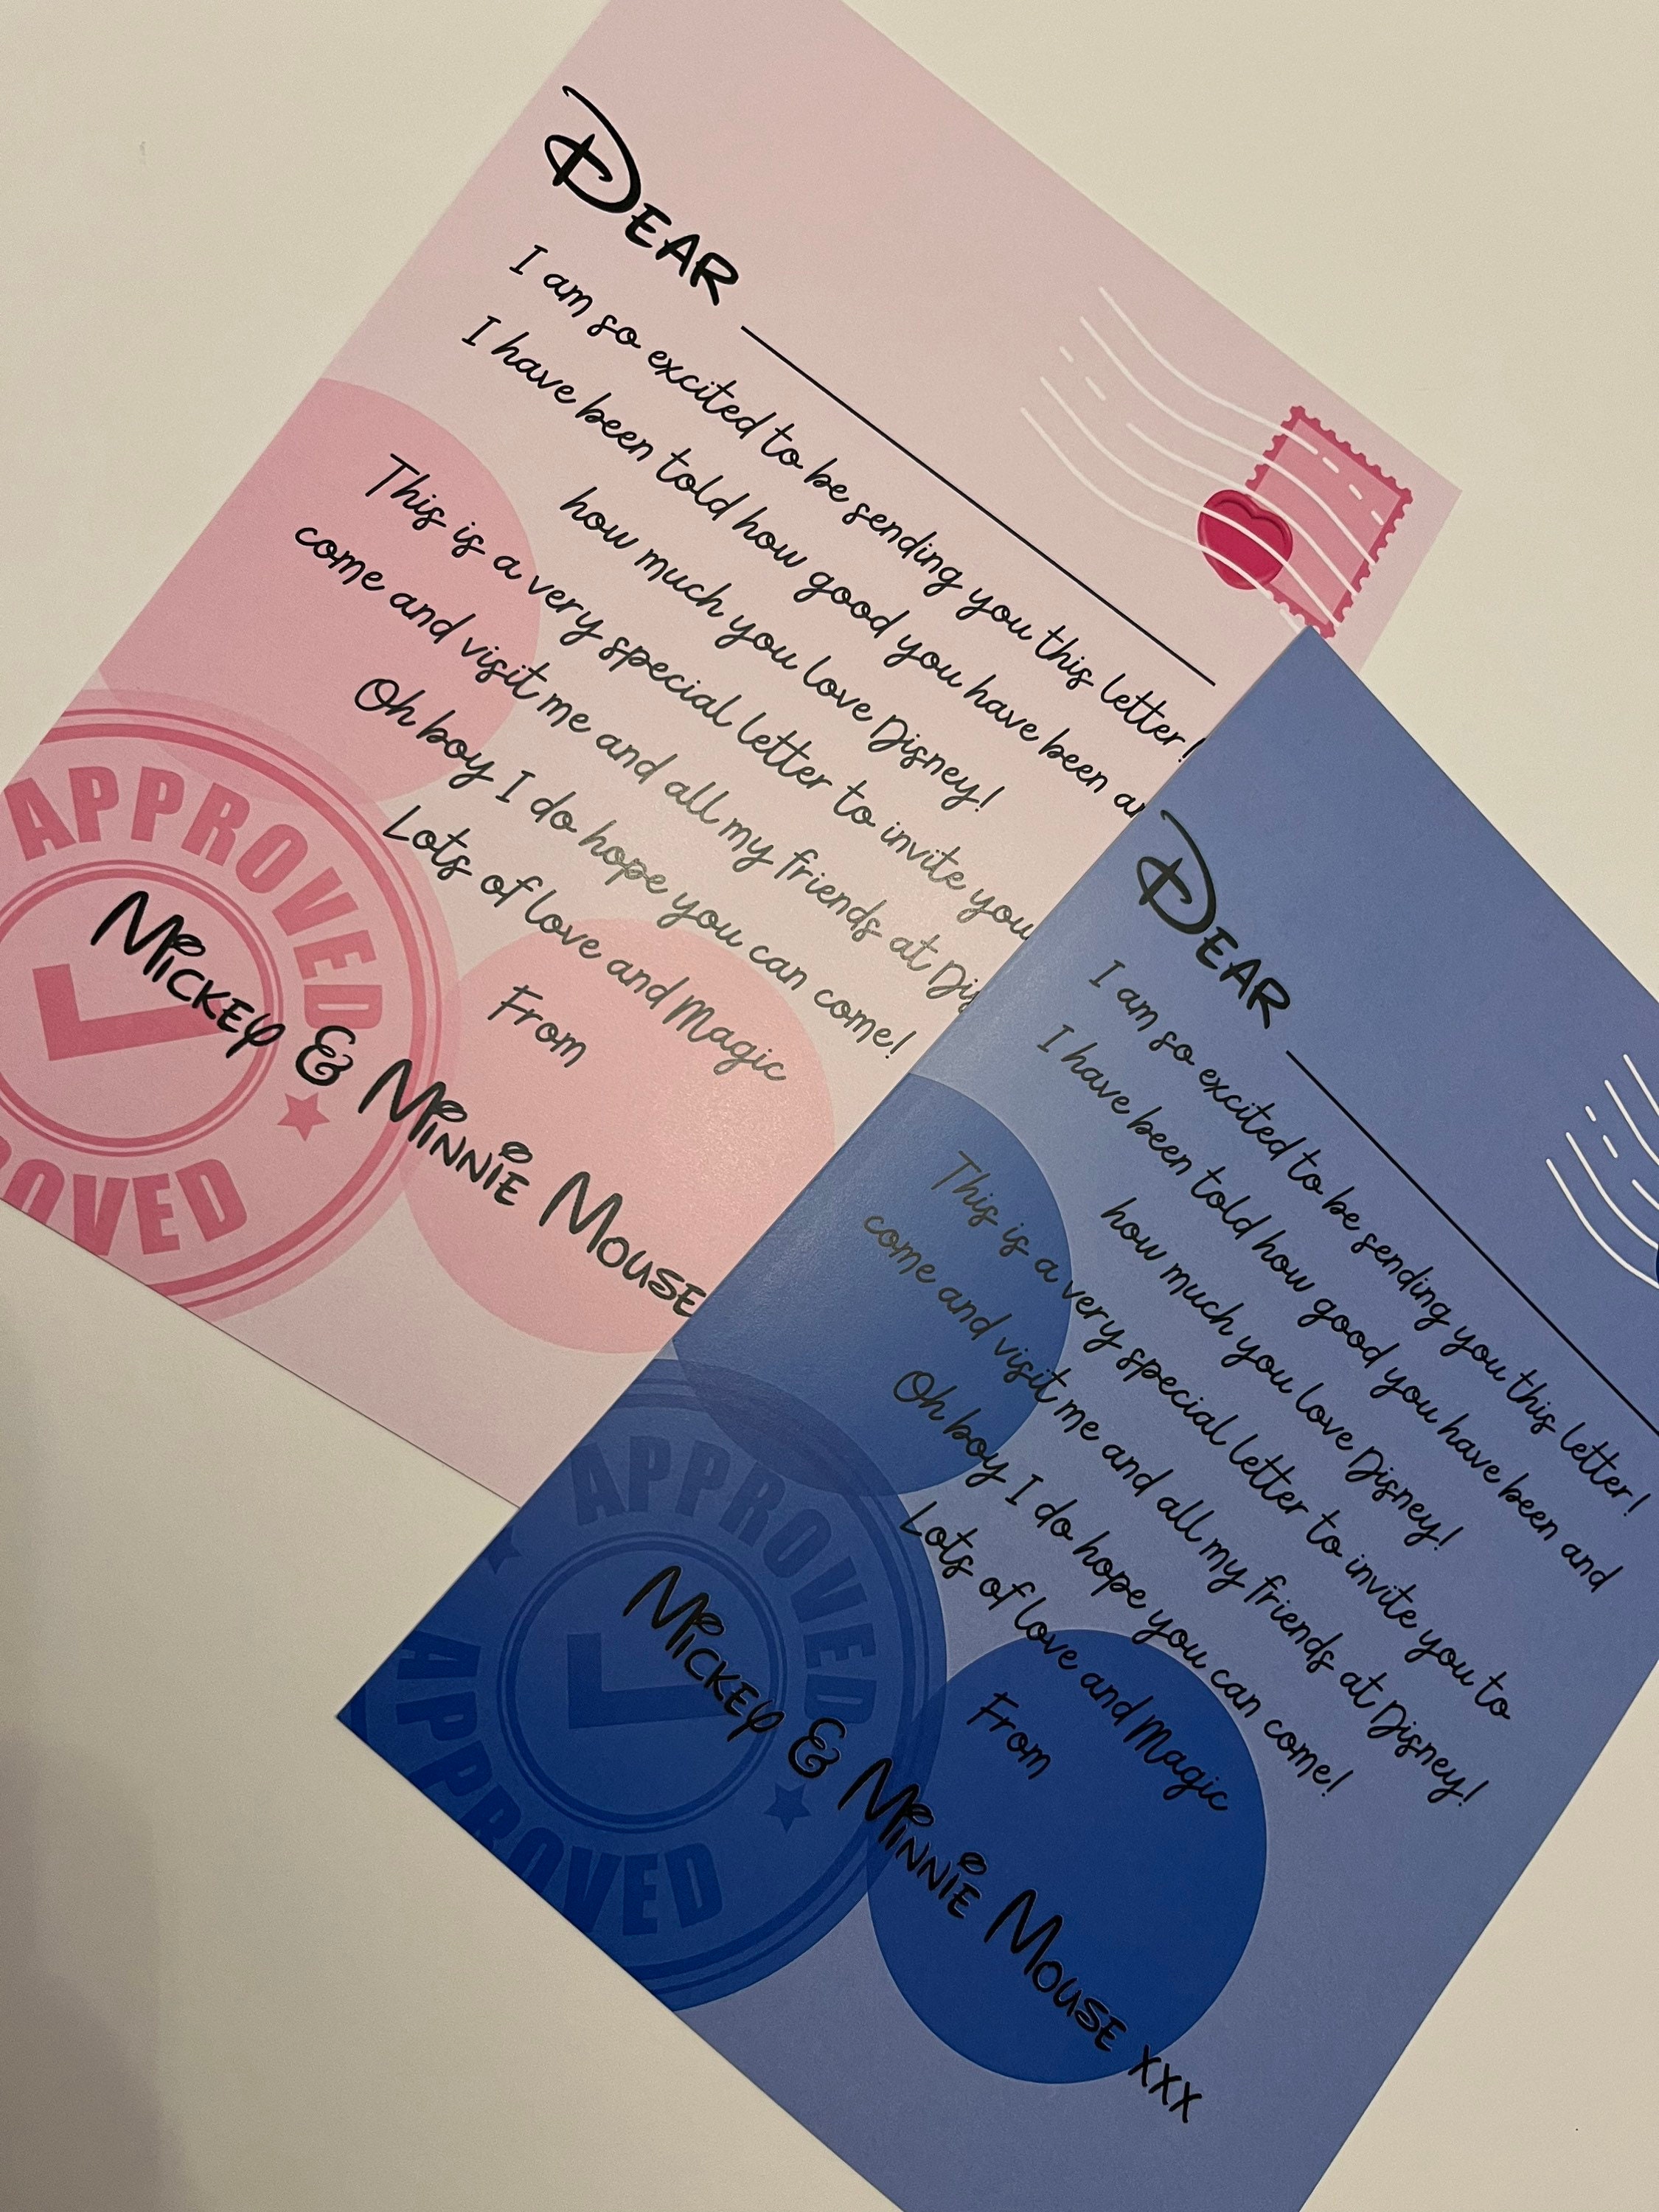 DEAR
I am so excited to be sending you this letter!
I have been told how good you have been
how much you love Disney!
This is a very special letter to invite you
come and visit me and all my friends at
Oh boy I do hope you can come!
Lots of love and Magic
From
MICKEY & MINNIE MOUSE
APPROVED
DEAR
I am so excited to be sending you this letter!
I have been told how good you have been and
how much you love Disney!
This is a very special letter to invite you to
come and visit me and all my friends at Disney!
Oh boy I do hope you can come!
Lots of love and Magic
From
MICKEY & MINNIE MOUSE XXX
APPROVED
APPROVED